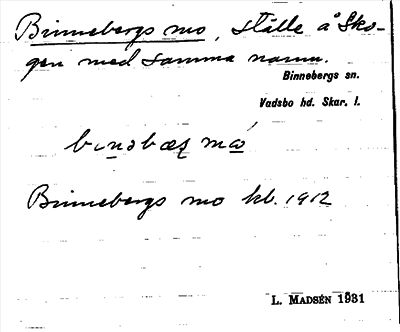 Binnebergs mo, ställe å Sko-
gen med samma namn.
Binnebergs sn.
Vadsbo hd. Skar. l.
Binnebergs mo kb. 1912
L. MADSÉN 1931